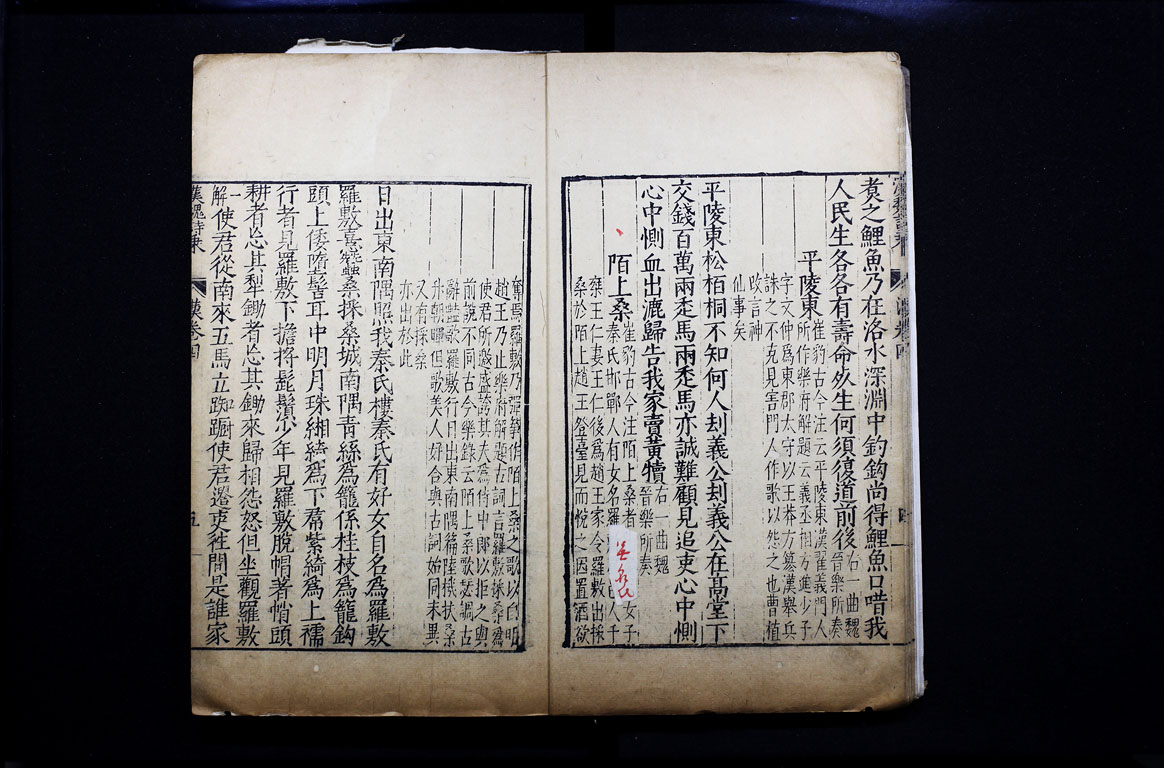 煑之鯉魚乃在洛水深淵中釣鈎尚得鯉魚口唶我
人民生各各有壽命死生何須復道前後右一曲魏晉樂所奏
平陵東崔豹古今注云平陵東漢翟義門人
所作樂府解題云義丞相方進少子
字文仲爲東郡太守以王莽方簒漢舉兵
誅之不克見害門人作歌以怨之也曹植
改言神
仙事矣
平陵東松柏桐不知何人刦義公刦義公在髙堂下
交錢百萬兩走馬兩走馬亦誠難顧見追吏心中惻
心中惻血出漉歸告我家賣黃犢右一曲魏晉樂所奏
陌上桑崔豹古今注陌上桑者
女子
秦氏邯鄲人有女名羅
人千
乗王仁妻王仁後爲趙王家令羅敷出採
桑於陌上趙王登臺見而悅之因置酒欲
奪焉羅敷乃彈筝作陌上桑之歌以自明
趙王乃止樂府解題古詞言羅敷採桑爲
使君所邀盛誇其夫爲侍中郎以拒之與
前說不同古今樂錄云陌上桑歌瑟調古
辭豔歌羅敷行日出東南隅篇陸機扶桑
升朝暉但歌美人好合與古詞始同末異
又有採桑
亦出於此
日出東南隅照我秦氏樓秦氏有好女自名爲羅敷
羅敷憙蠶桑採桑城南隅青絲爲籠係桂枝爲籠鈎
頭上倭墮髻耳中明月珠緗綺爲下帬紫綺爲上襦
行者見羅敷下擔捋髭鬚少年見羅敷脫帽著帩頭
耕者忘其犁鋤者忘其鋤來歸相怨怒但坐觀羅敷
一解使君從南來五馬立踟躕使君遣吏往問是誰家
漢魏詩乗
漢卷四
五